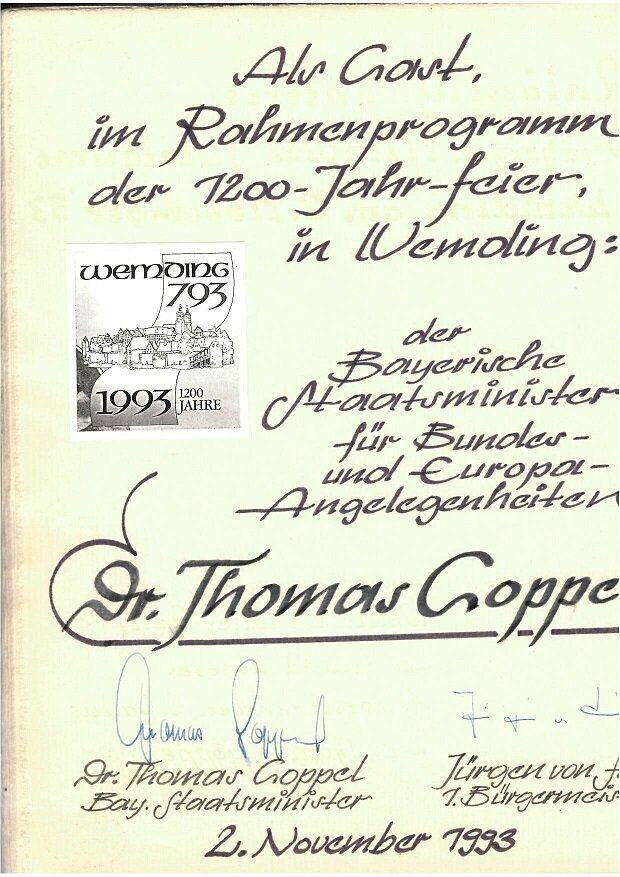 Als Gast,
im Rahmenprogramm
der 1200-Jahr-feier,
in Wemding:
WEMDING
793
1993 1200
JAHRE
der
Bayerische
Staatsminister
für Bundes-
und Europa-
Angelegenheiten
Dr. Thomas Goppe
Thomas Goppel
Dr. Thomas Goppel
Bay. Staatsminister
Jürgen von
1. Bürgermeis
2. November 1993